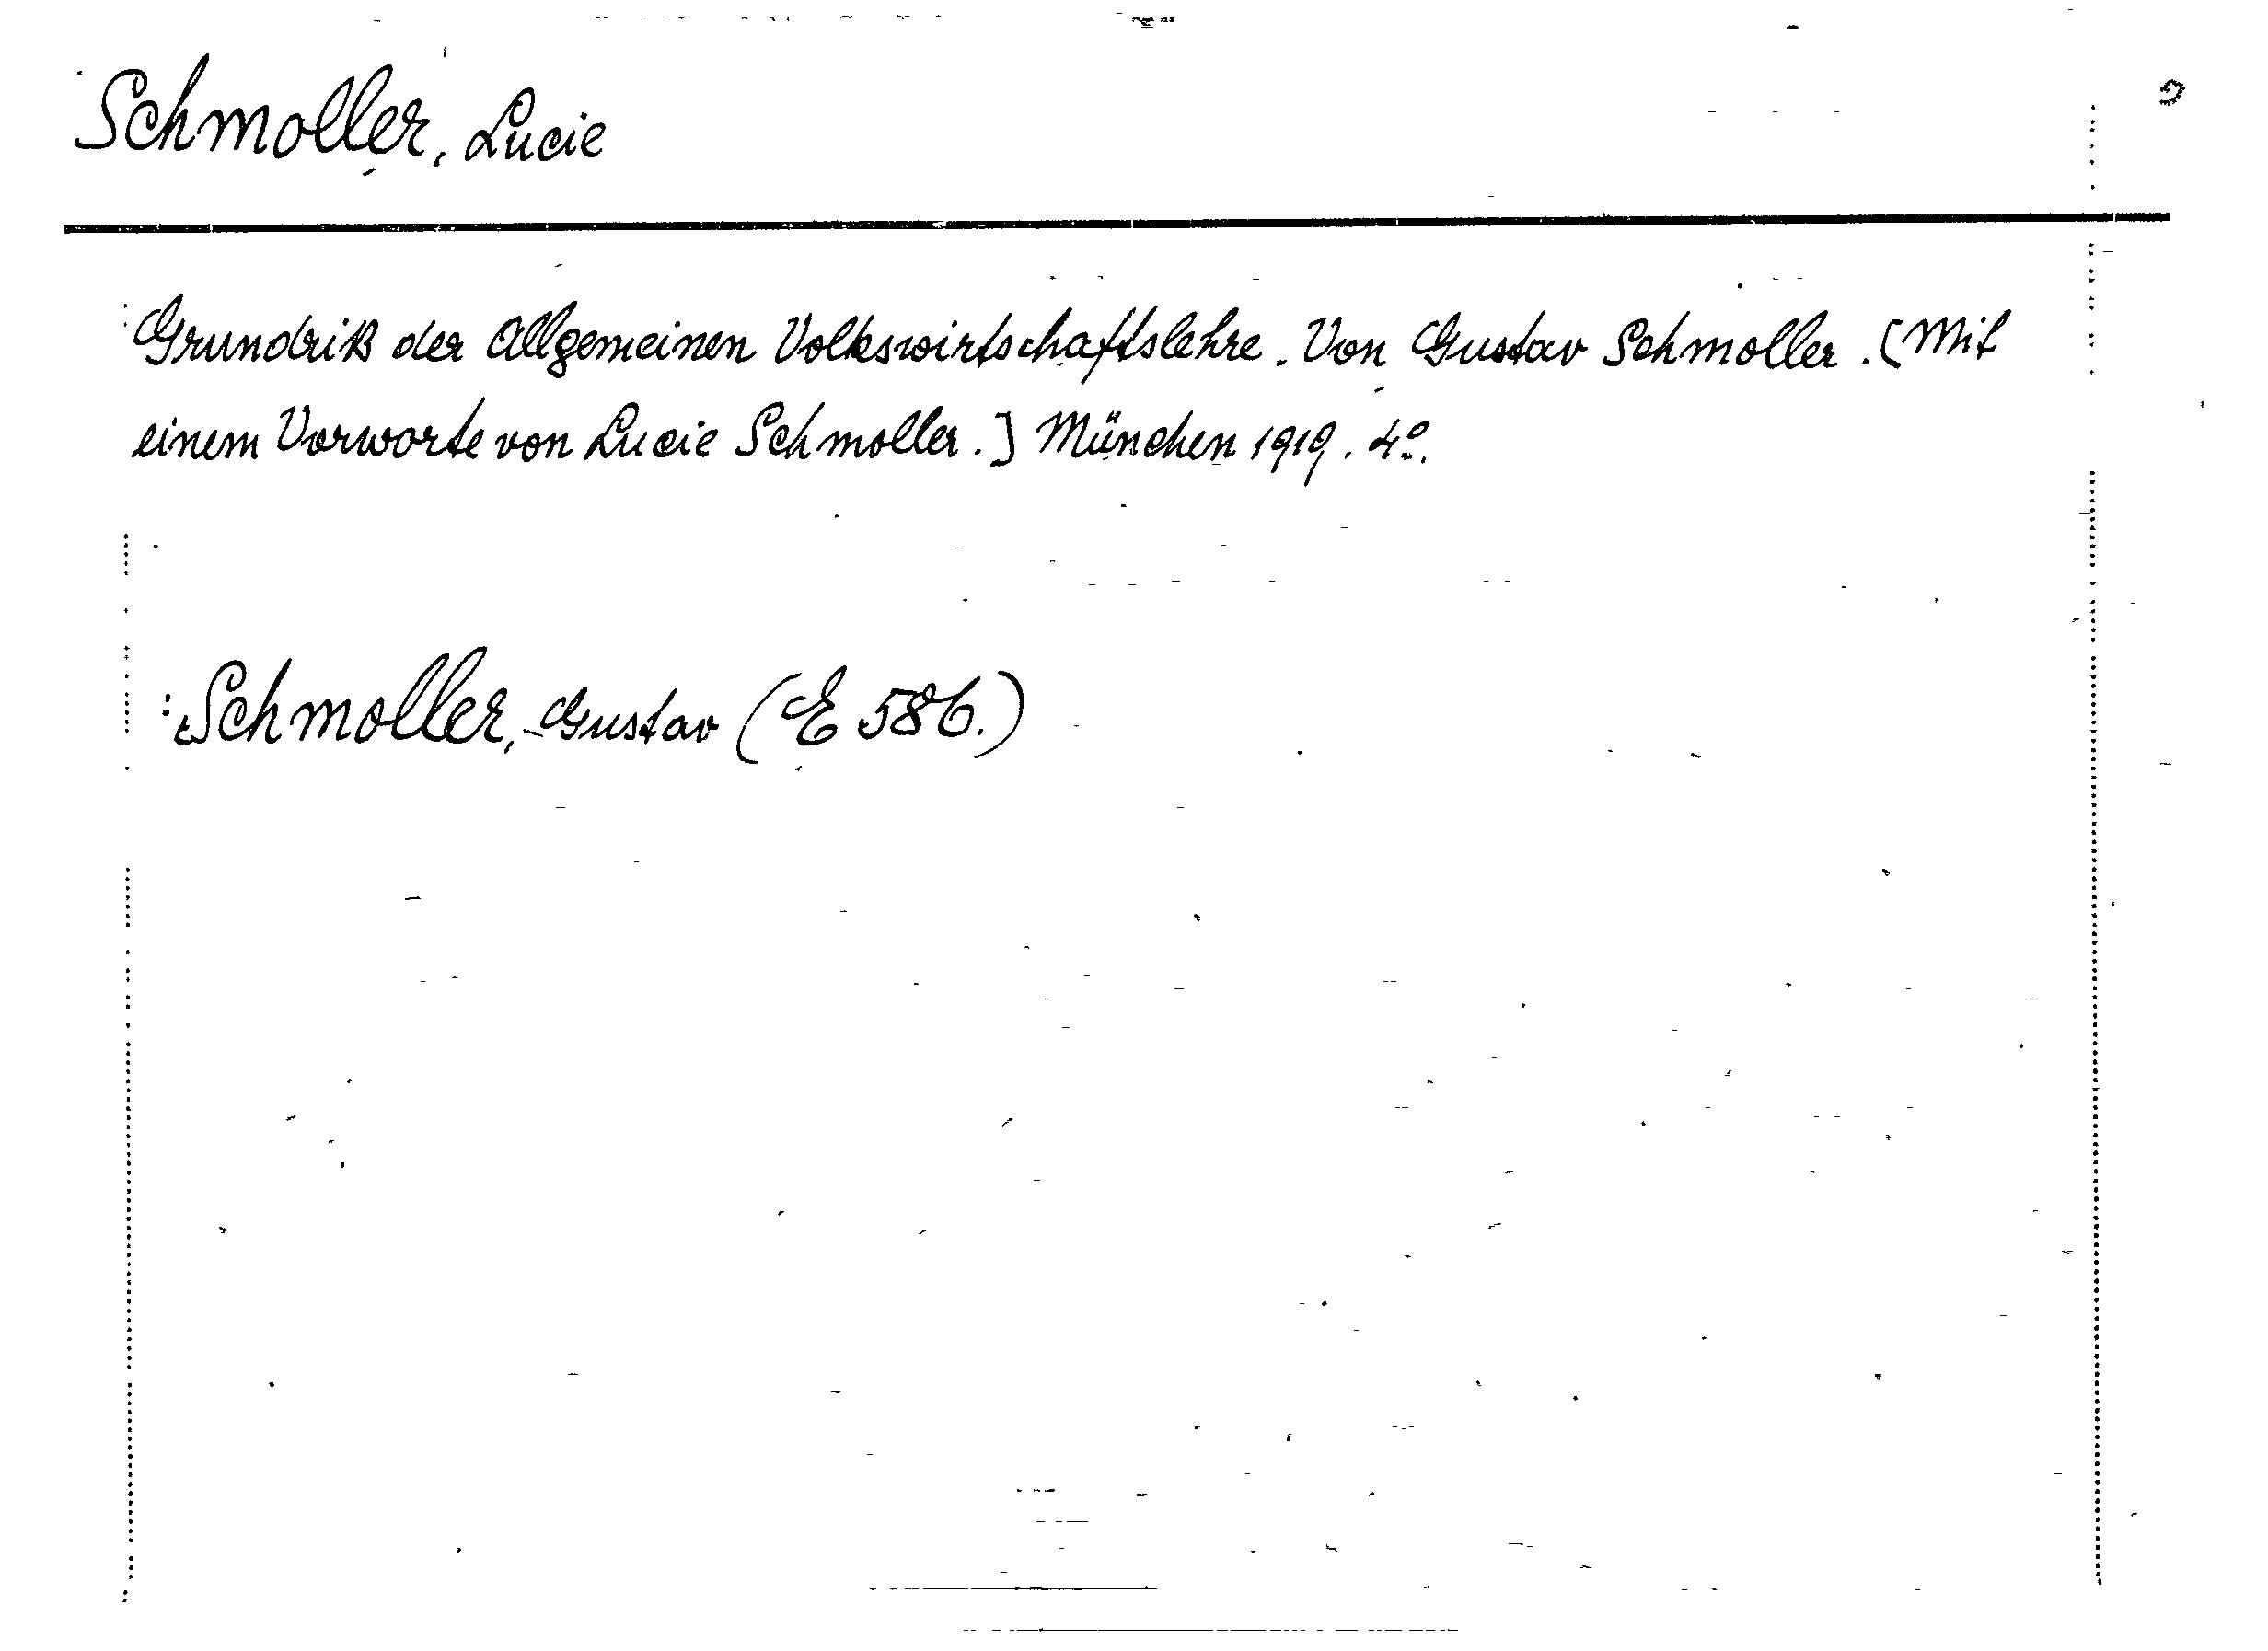 Schmoller, Lucie
Grundriß der Allgemeinen Volkswirtschaftslehre. Von Gustav Schmoller. [Mit
einem Vorworte von Lucie Schmoller.] München 1919. 4º.
: Schmoller, Gustav (E 586.)